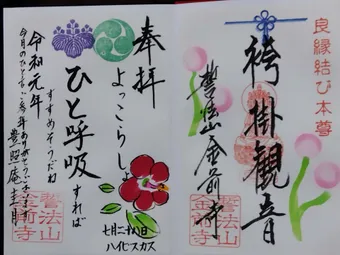 良縁結び本尊
袴掛観音
誓法山金前寺
誓法山
金前寺
奉拝
よっこらしょ
ひと呼吸すれば
すすめそうだね
令和元年
七月二十八日
ハイビスカス
誓法山
金前寺